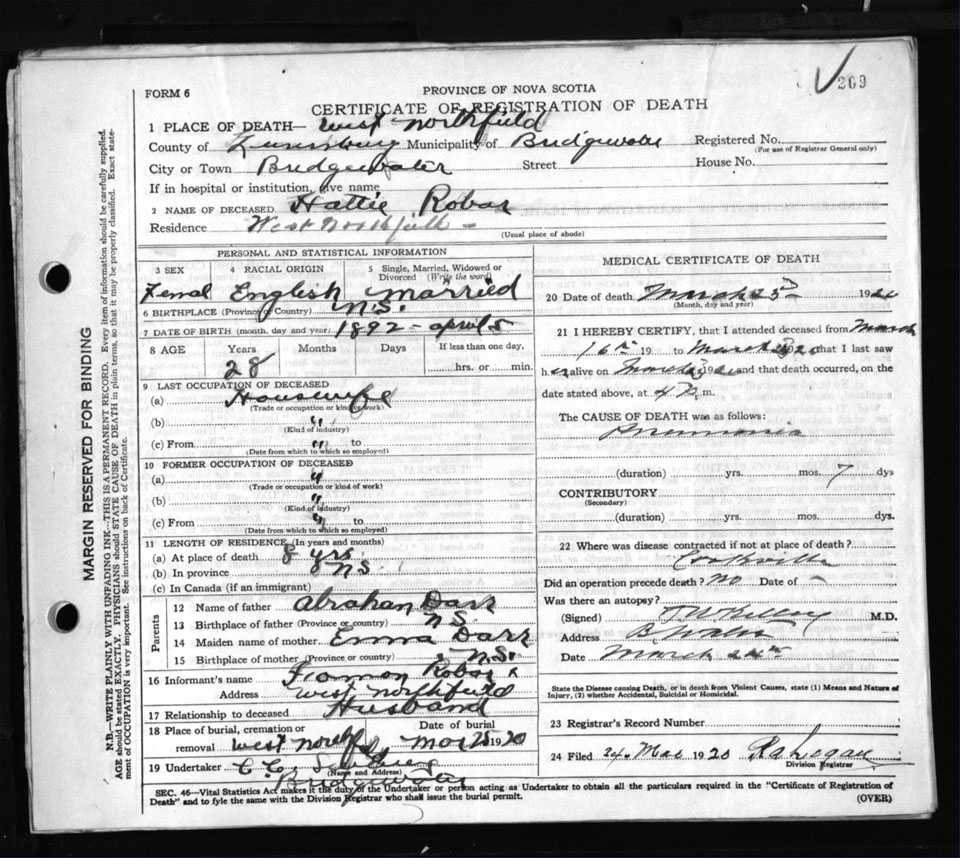 269
FORM 6
PROVINCE OF NOVA SCOTIA
CERTIFICATE OF REGISTRATION OF DEATH
1 PLACE OF DEATH— West Northfield
County of Lunenburg Municipality of Bridgewater Registered No.
(For use of Registrar General only)
City or Town Bridgewater Street House No.
If in hospital or institution, give name
2 NAME OF DECEASED Hattie Robar
Residence West Northfield
(Usual place of abode)
PERSONAL AND STATISTICAL INFORMATION
3 SEX 4 RACIAL ORIGIN 5 Single, Married, Widowed or Divorced (Write the word)
Femal English Married
6 BIRTHPLACE (Province or Country) N.S.
7 DATE OF BIRTH (month, day and year) 1892 - April 5
8 AGE Years Months Days If less than one day,
28 hrs. or min.
9 LAST OCCUPATION OF DECEASED
(a) Housewife
(Trade or occupation or kind of work)
(b) "
(Kind of industry)
(c) From " to
(Date from which to which so employed)
10 FORMER OCCUPATION OF DECEASED
(a) "
(Trade or occupation or kind of work)
(b) "
(Kind of industry)
(c) From " to
(Date from which to which so employed)
11 LENGTH OF RESIDENCE (In years and months)
(a) At place of death 8 yrs
(b) In province N.S.
(c) In Canada (if an immigrant)
Parents
12 Name of father Abrahan Darr
13 Birthplace of father (Province or country) N.S.
14 Maiden name of mother Emma Darr
15 Birthplace of mother (Province or country) N.S.
16 Informant's name Robar
Address West Northfield
17 Relationship to deceased Husband
18 Place of burial, cremation or removal West Northfield Date of burial Mar 25 1920
19 Undertaker C.C.
(Name and Address)
Bridgewater
MEDICAL CERTIFICATE OF DEATH
20 Date of death March 23rd 192
(Month, day and year)
21 I HEREBY CERTIFY, that I attended deceased from March
16th 19 to March 1920 that I last saw
her alive on March 19 and that death occurred, on the
date stated above, at 4 P.m.
The CAUSE OF DEATH was as follows:
Pneumonia
(duration) yrs. mos. 7 dys
CONTRIBUTORY
(Secondary)
(duration) yrs. mos. dys.
22 Where was disease contracted if not at place of death?
Did an operation precede death? No Date of -
Was there an autopsy?
(Signed) M.D.
Address B. Water
Date March 24th
State the Disease causing Death, or in death from Violent Causes, state (1) Means and Nature of
Injury, (2) whether Accidental, Suicidal or Homicidal.
23 Registrar's Record Number
24 Filed 24. Mar 1920
Division Registrar
SEC. 46—Vital Statistics Act makes it the duty of the Undertaker or person acting as Undertaker to obtain all the particulars required in the "Certificate of Registration of
Death" and to fyle the same with the Division Registrar who shall issue the burial permit. (OVER)
MARGIN RESERVED FOR BINDING
N.B.—WRITE PLAINLY WITH UNFADING INK—THIS IS A PERMANENT RECORD. Every item of information should be carefully supplied.
AGE should be stated EXACTLY. PHYSICIANS should STATE CAUSE OF DEATH in plain terms, so that it may be properly classified. Exact statement
of OCCUPATION is very important. See instructions on back of Certificate.